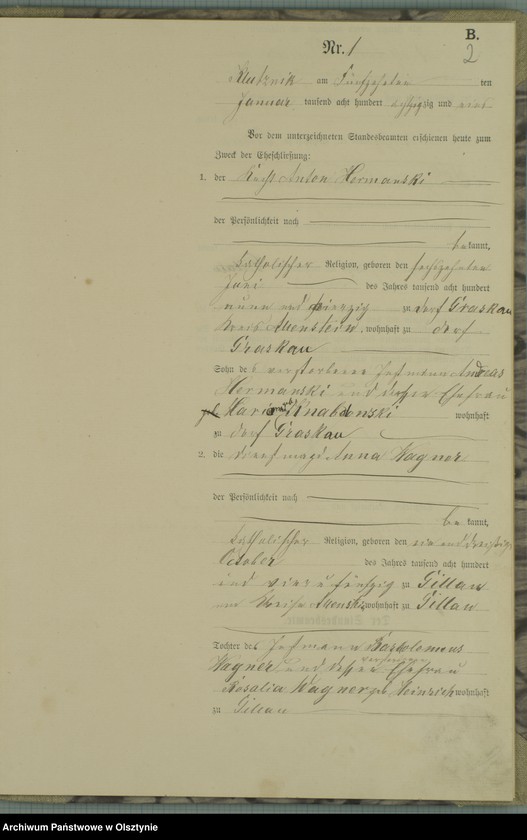 B.
2
Nr. 1
am Fünfzehnten ten
Januar tausend acht hundert achtzig und eins
Vor dem unterzeichneten Standesbeamten erschienen heute zum
Zweck der Eheschließung:
1. der Knecht Anton Hermanski
der Persönlichkeit nach
bekannt,
katholischer Religion, geboren den sechszehnten
Juni des Jahres tausend acht hundert
neun und vierzig zu Dorf Graskau
Kreis Allenstein, wohnhaft zu Dorf
Graskau
Sohn des verstorbenen Andreas
Hermanski und dessen Ehefrau
Maria wohnhaft
zu Dorf Graskau
2. die Dienstmagd Anna Wagner
der Persönlichkeit nach
bekannt,
katholischer Religion, geboren den ein und dreißigsten
October des Jahres tausend acht hundert
und vier u fünfzig zu Gillau
im Kreise Allenstein wohnhaft zu Gillau
Tochter des Bartolomeus
Wagner und dessen Ehefrau
Rosalia Wagner geb Heinrich wohnhaft
zu Gillau
Archiwum Państwowe w Olsztynie